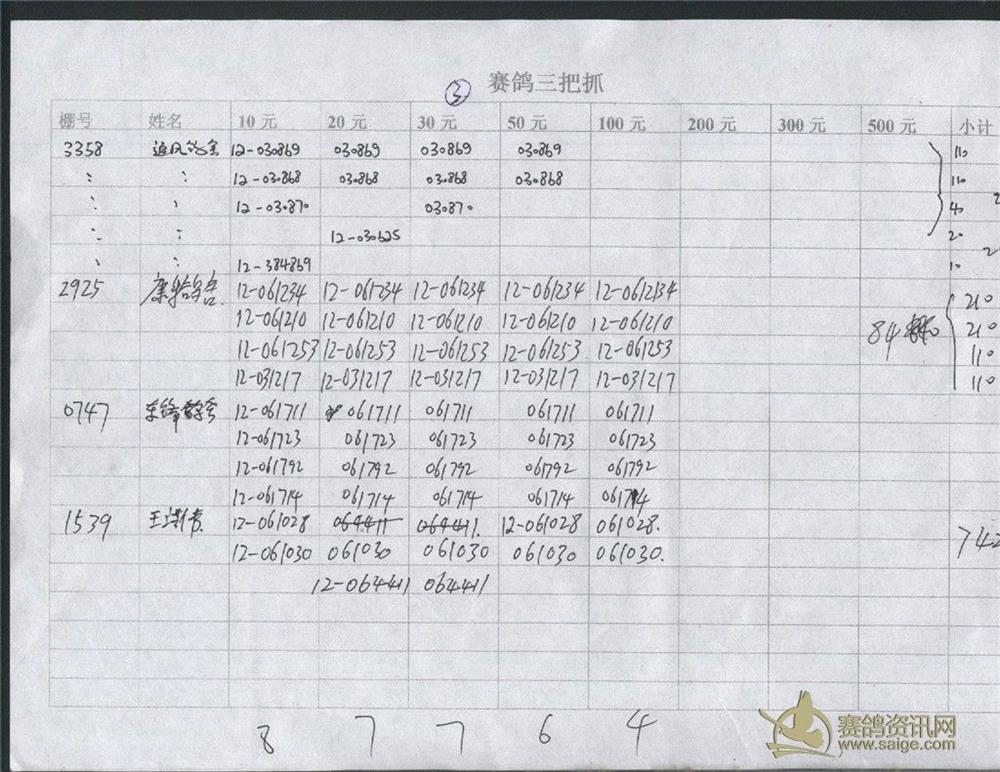 ③ 赛鸽三把抓
棚号 姓名 10 元 20 元 30 元 50 元 100 元 200 元 300 元 500 元 小计
3358 追风 12-030869 030869 030869 030869 110
: : 12-030868 030868 030868 030868 110
: : 12-030870 030870 40
: : 12-030625 20
: : 12-384869 10
2925 12-061234 12-061234 12-061234 12-061234 12-061234 210
12-061210 12-061210 12-061210 12-061210 12-061210 84 210
12-061253 12-061253 12-061253 12-061253 12-061253 110
12-031217 12-031217 12-031217 12-031217 12-031217 110
0747 12-061711 061711 061711 061711 061711
12-061723 061723 061723 061723 061723
12-061792 061792 061792 061792 061792
12-061714 061714 061714 061714 061714
1539 王 12-061028 064411 064411. 12-061028 061028.
12-061030 061030 061030 061030 061030. 742
12-064411 064411
8 7 7 6 4
赛鸽资讯网
www.saige.com